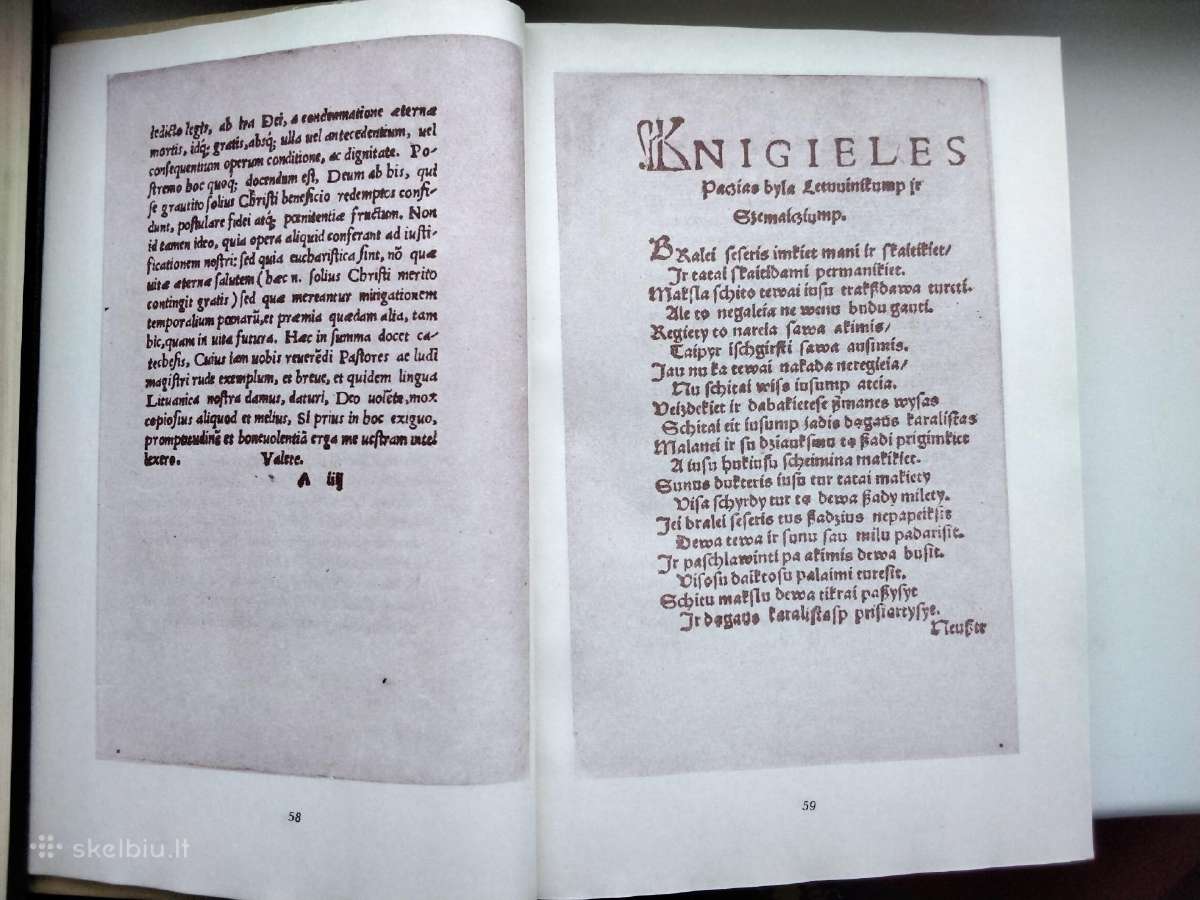 ledicto legis, ab ira Dei, a condemnatione æternæ
mortis, idq; gratis, absq; ulla uel antecedentium, uel
consequentium operum conditione, ac dignitate. Po-
stremo hoc quoq; docendum est, Deum ab his, qui
se gratuito solius Christi beneficio redemptos confi-
dunt, postulare fidei atq; pœnitentiæ fructum. Non
id tamen ideo, quia opera aliquid conferant ad iusti-
ficationem nostri: sed quia eucharistica sint, nõ quæ
uitæ æternæ salutem (hæc n. solius Christi merito
contingit gratis) sed quæ mereantur mitigationem
temporalium pœnarũ, et præmia quædam alia, tam
hic, quam in uita futura. Hæc in summa docet ca-
techesis, Cuius iam uobis reuerẽdi Pastores ac ludi
magistri rude exemplum, et breue, et quidem lingua
Lituanica nostra damus, daturi, Deo uolẽte, mox
copiosius aliquod et melius, Si prius in hoc exiguo,
promptitudinẽ et beneuolentiã erga me uestram intel
lexero. Valete.
A iiij
58
KNIGIELES
Paczias byla Letuvinikump ir
Szemaicziump.
BRalei seseris imkiet mani ir skaitikiet/
Ir tatai skaitidami permanikiet.
Maksla schito tewai iusu trakszdawa tureti.
Ale to negaleia ne wenu budu gauti.
Regiety to nareia sawa akimis/
Taipyr ischgirsti sawa ausimis.
Jau nu ka tewai nakada neregieia/
Nu schitai wiss iusump ateia.
Veizdekiet ir dabakietese ßmanes wysas
Schitai eit iusump ßadis dągaus karalistas
Malanei ir su dziauksmu tą ßadi prigimkiet
A iusu hukiusu scheimina makikiet.
Sunus dukteris iusu tur tatai makiety
Visa schyrdy tur tą dewa ßady milety.
Jei bralei seseris tus ßadzius nepapeiksit
Dewa tewa ir sunu sau milu padarisit.
Ir paschlawinti pa akimis dewa busit.
Visosu daiktosu palaimi turesit.
Schitu makslu dewa tikrai paßysyt
Ir dągaus karalistasp prisiartysyt.
Neußtr
59
skelbiu.lt